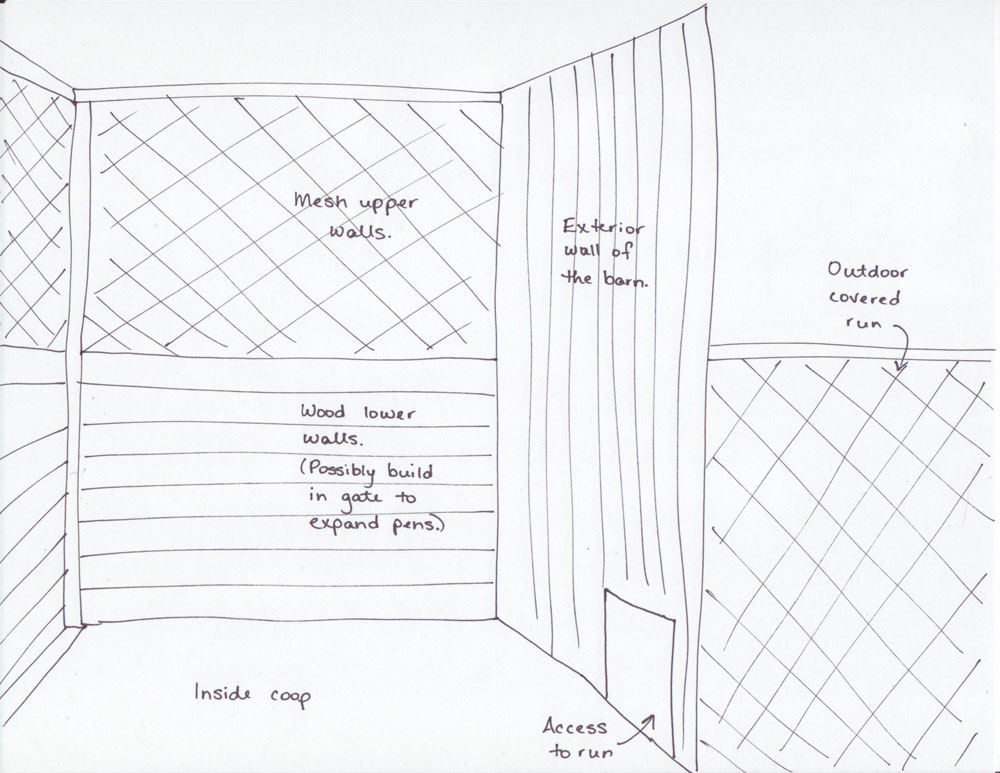 Mesh upper
walls.
Exterior
wall of
the barn.
Outdoor
covered
run
Wood lower
walls.
(Possibly build
in gate to
expand pens.)
Inside coop
Access
to run